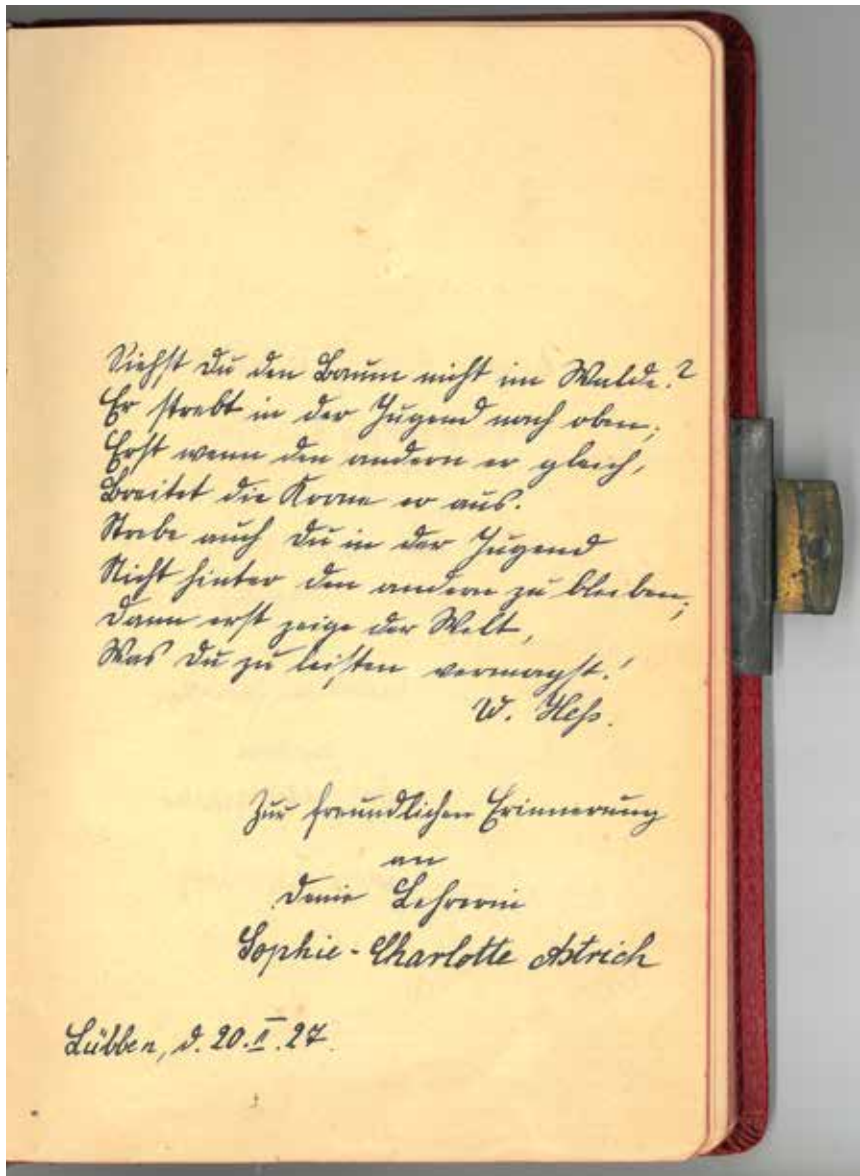 Siehst Du den Baum nicht im Walde?
Er strebt in der Jugend nach oben;
Erst wenn den andern er gleich,
Breitet die Krone er aus.
Strebe auch Du in der Jugend
Nicht hinter den andern zu bleiben;
Dann erst zeige der Welt,
Was Du zu leisten vermagst!
W. Heß.
Zur freundlichen Erinnerung
an
Deine Lehrerin
Sophie-Charlotte Astrich
Lübben, d. 20. II. 27.